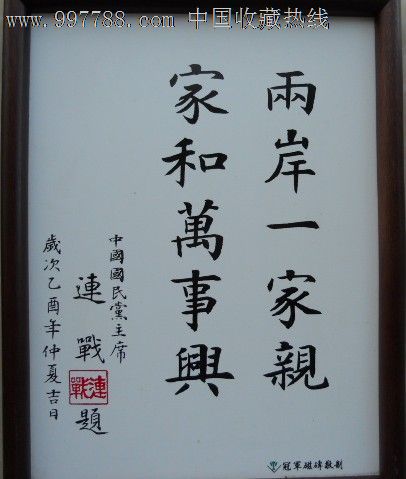 www.997788.com 中国收藏热线
兩岸一家親
家和萬事興
中國國民黨主席
連戰題
連戰
歲次乙酉年仲夏吉日
冠軍磁磚敬制